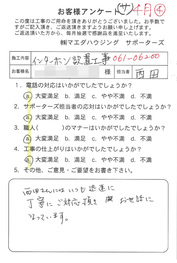 お客様アンケート
サ 4月 ④
この度は工事のご依頼を頂きありがとうございました。お手数で
すがご記入頂き、ご返送頂きますようお願い申し上げます。
ご返送いただいた方に、毎月抽選で感謝品を進呈いたします。
㈱マエダハウジング サポーターズ
工事内容 インターホン設置工事 061-06200
お名前 様 担当者 西田
1. 電話の対応はいかがでしたでしょうか?
a 大変満足 b. 満足 c. やや不満 d. 不満
2. サポーターズ担当者の対応はいかがでしたでしょうか?
a 大変満足 b. 満足 c. やや不満 d. 不満
3. 職人( )のマナーはいかがでしたでしょうか?
a 大変満足 b. 満足 c. やや不満 d. 不満
4. 工事の仕上がりはいかがでしたでしょうか?
a 大変満足 b. 満足 c. やや不満 d. 不満
◇その他、ご意見・ご要望などお書き下さい。
西田さんにはいつも迅速に
丁寧にご対応頂き お世話に
なっています。